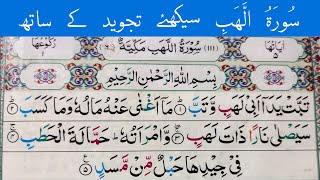 سُورَۃُ الَّهَبِ سیکھئے تجوید کے ساتھ
اٰیاتھا ۵ (۱۱۱) سُوْرَةُ اللَّهَبِ مَكِّيَّةٌ (۶) رکوعھا ۱
بِسْمِ اللهِ الرَّحْمٰنِ الرَّحِيْمِ
تَبَّتْ يَدَاۤ اَبِيْ لَهَبٍ وَّتَبَّ ۱ مَاۤ اَغْنٰى عَنْهُ مَالُهٗ وَمَا كَسَبَ ۲
سَيَصْلٰى نَارًا ذَاتَ لَهَبٍ ۳ وَّامْرَاَتُهٗ حَمَّالَةَ الْحَطَبِ ۴
فِيْ جِيْدِهَا حَبْلٌ مِّنْ مَّسَدٍ ۵